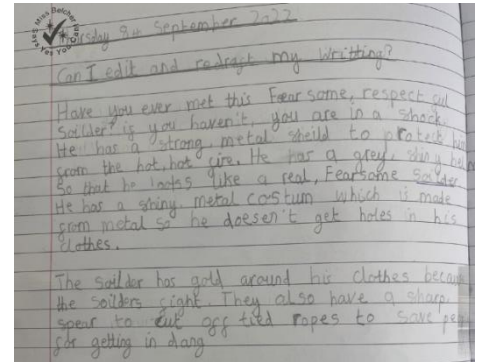 Miss Belcher says Yes You Can
Thursday 8th September 2022
Can I edit and redraft my writting?
Have you ever met this Fearsome, respect ful
Soilder? is you haven't, you are in a shock.
He has a strong, metal sheild to protect him
from the hot, hot fire. He has a grey, shiny hel
so that he looks like a real, Fearsome Soilder
He has a shiny, metal costum which is made
from metal so he doesen't get holes in his
clothes.
The soilder has gold around his clothes becau
the soilders fight. They also have a sharp,
spear to cut off tied ropes to save pe
for getting in dang